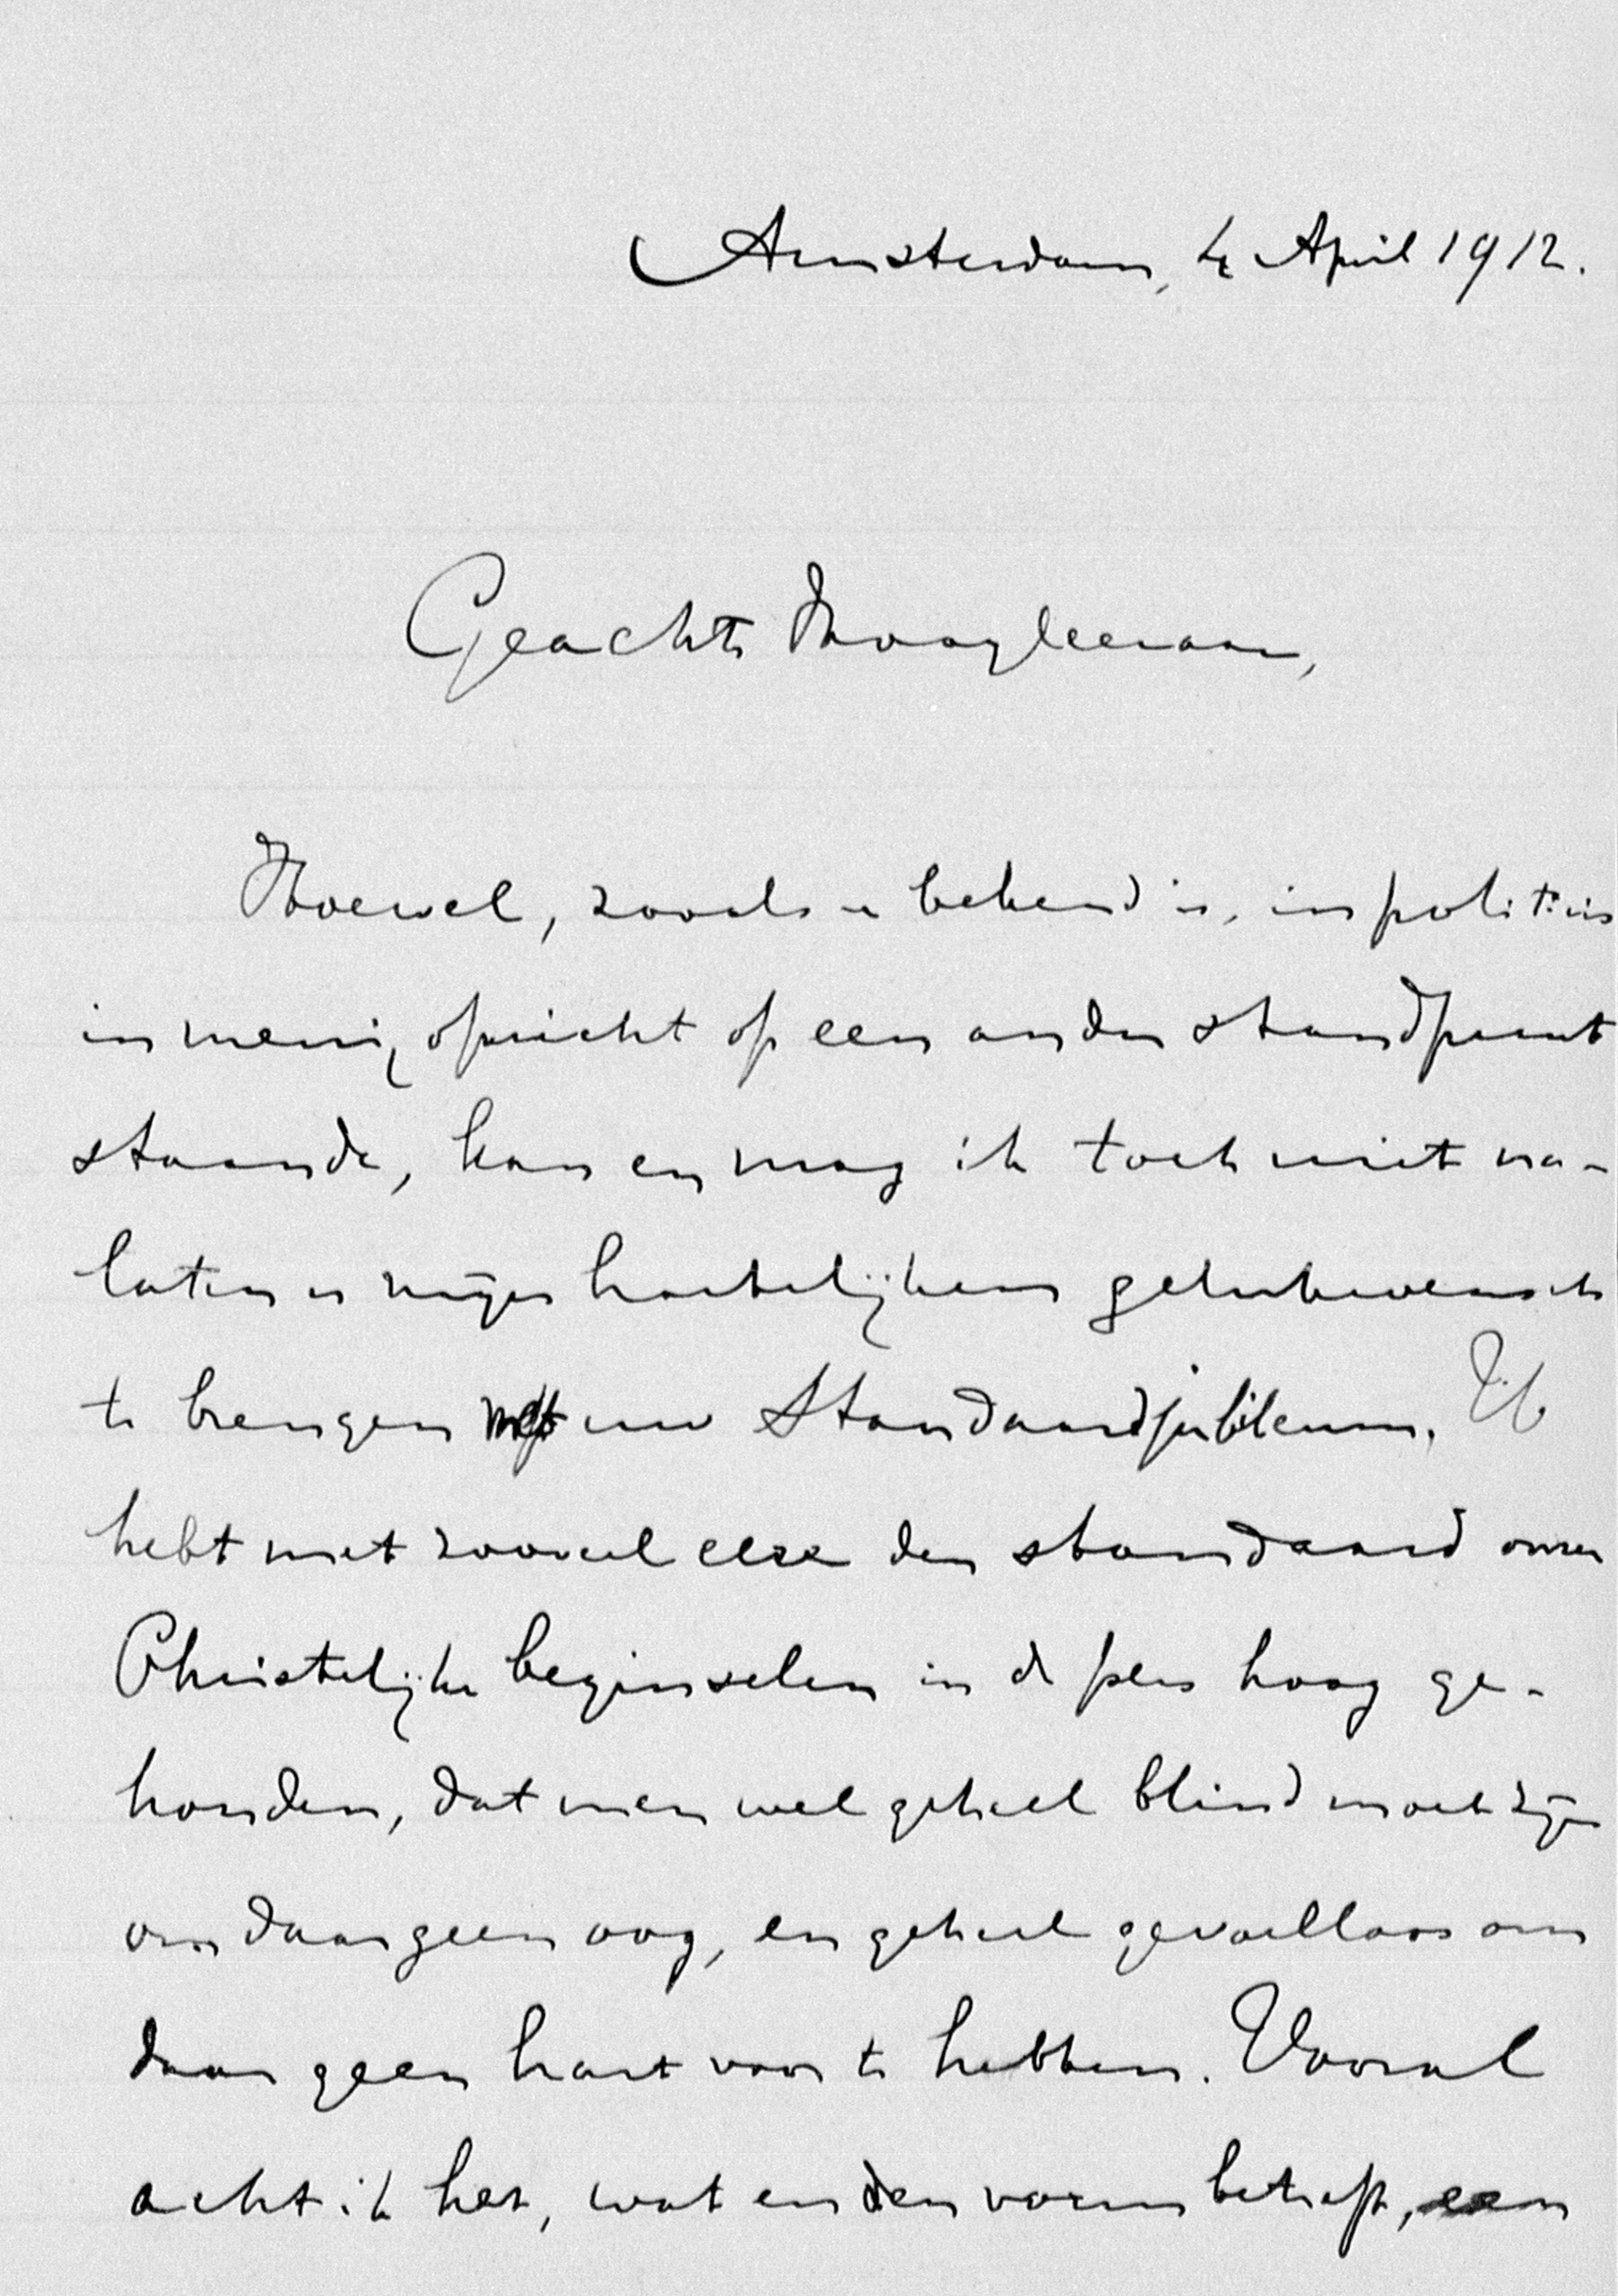 Amsterdam, 4 April 1912.
Geachte Hoogleeraar,
Hoewel, zooals u bekend is, in politicis
in menig opzicht op een ander standpunt
staande, kan en mag ik toch niet na-
laten u mijn hartelijken gelukwensch
te brengen met uw Standaardjubileum. U
hebt met zooveel eere den standaard onzer
Christelijke beginselen in de pers hoog ge-
houden, dat men wel geheel blind moet zijn
om daar geen oog, en geheel gevoelloos om
daar geen hart voor te hebben. Vooral
acht ik het, wat en den vorm betreft, een